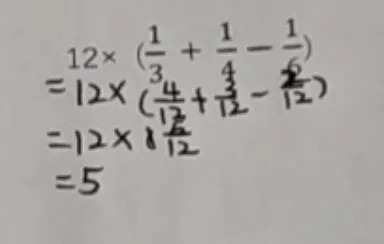 12× (1/3 + 1/4 − 1/6)
=12× (4/12 + 3/12 − 2/12)
=12× 5/12
=5